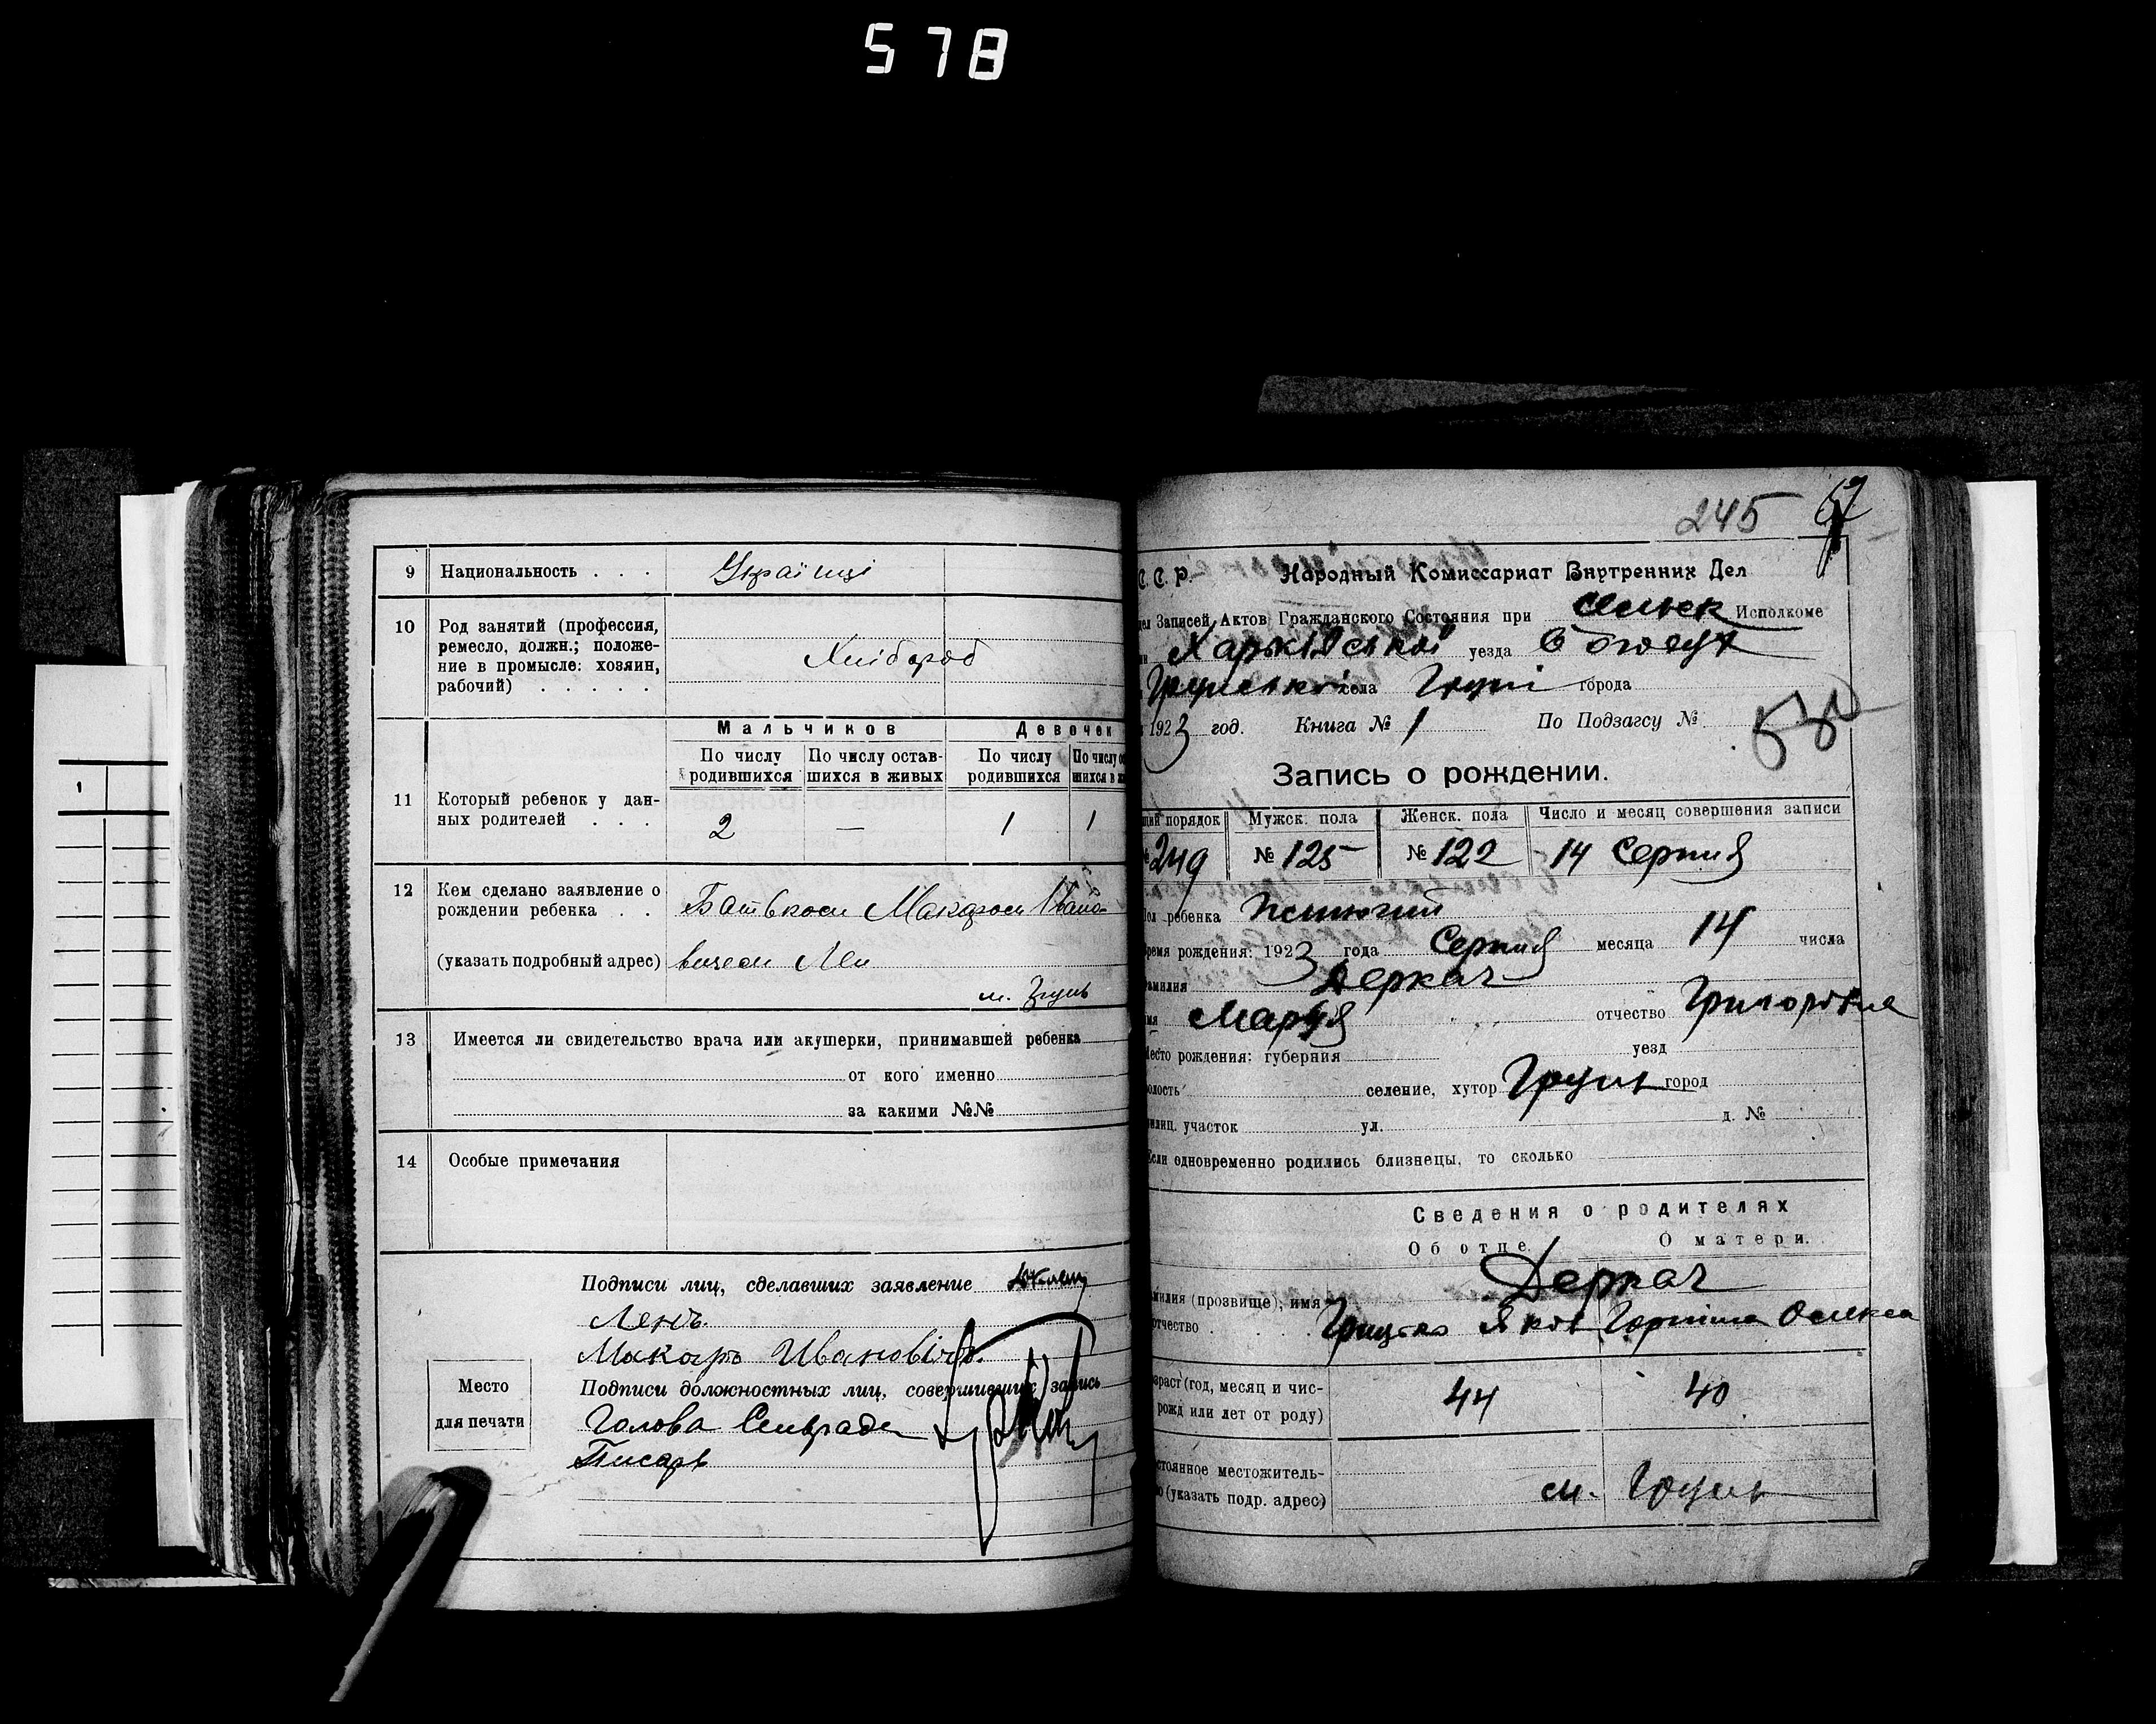 578
9 Национальность . . . Українці
10 Род занятий (профессия,
ремесло, должн.; положе-
ние в промысле: хозяин,
рабочий) . . . . . Хлібороб
Мальчиков Девочек
По числу родившихся По числу остав-шихся в живых По числу родившихся По числу
11 Который ребенок у дан-
ных родителей . . . 2 — 1 1
12 Кем сделано заявление о
рождении ребенка . . Батьком Макаром Івано-
(указать подробный адрес) вичем
м. Грунь
13 Имеется ли свидетельство врача или акушерки, принимавшей ребенка
от кого именно
за какими №№
14 Особые примечания
Подписи лиц, сделавших заявление
Ленъ
Макаръ Ивановічъ.
Подписи должностных лиц, совершивших запись
Голова Сельради
Писарь
Место
для печати
1
245
С. С. Р. Народный Комиссариат Внутренних Дел
Записей Актов Гражданского Состояния при Исполкоме
Харківської уезда Богодух
Грунської села Груні города
1923 год. Книга № 1 По Подзагсу №
530
Запись о рождении.
порядок Мужск. пола Женск. пола Число и месяц совершения записи
249 № 125 № 122 14 Серпня
ребенка жіночий
рождения: 1923 года Серпня месяца 14 числа
Деркач
Марія отчество Григорівна
рождения: губерния уезд
селение, хутор Грунь город
участок ул. д. №
одновременно родились близнецы, то сколько
Сведения о родителях
Об отце. О матери.
Деркач
(прозвище), имя
отчество . . . Грицько Яков Горпина Олекса
(год, месяц и чис-
рожд или лет от роду) 44 40
местожитель-
(указать подр. адрес) м. Грунь